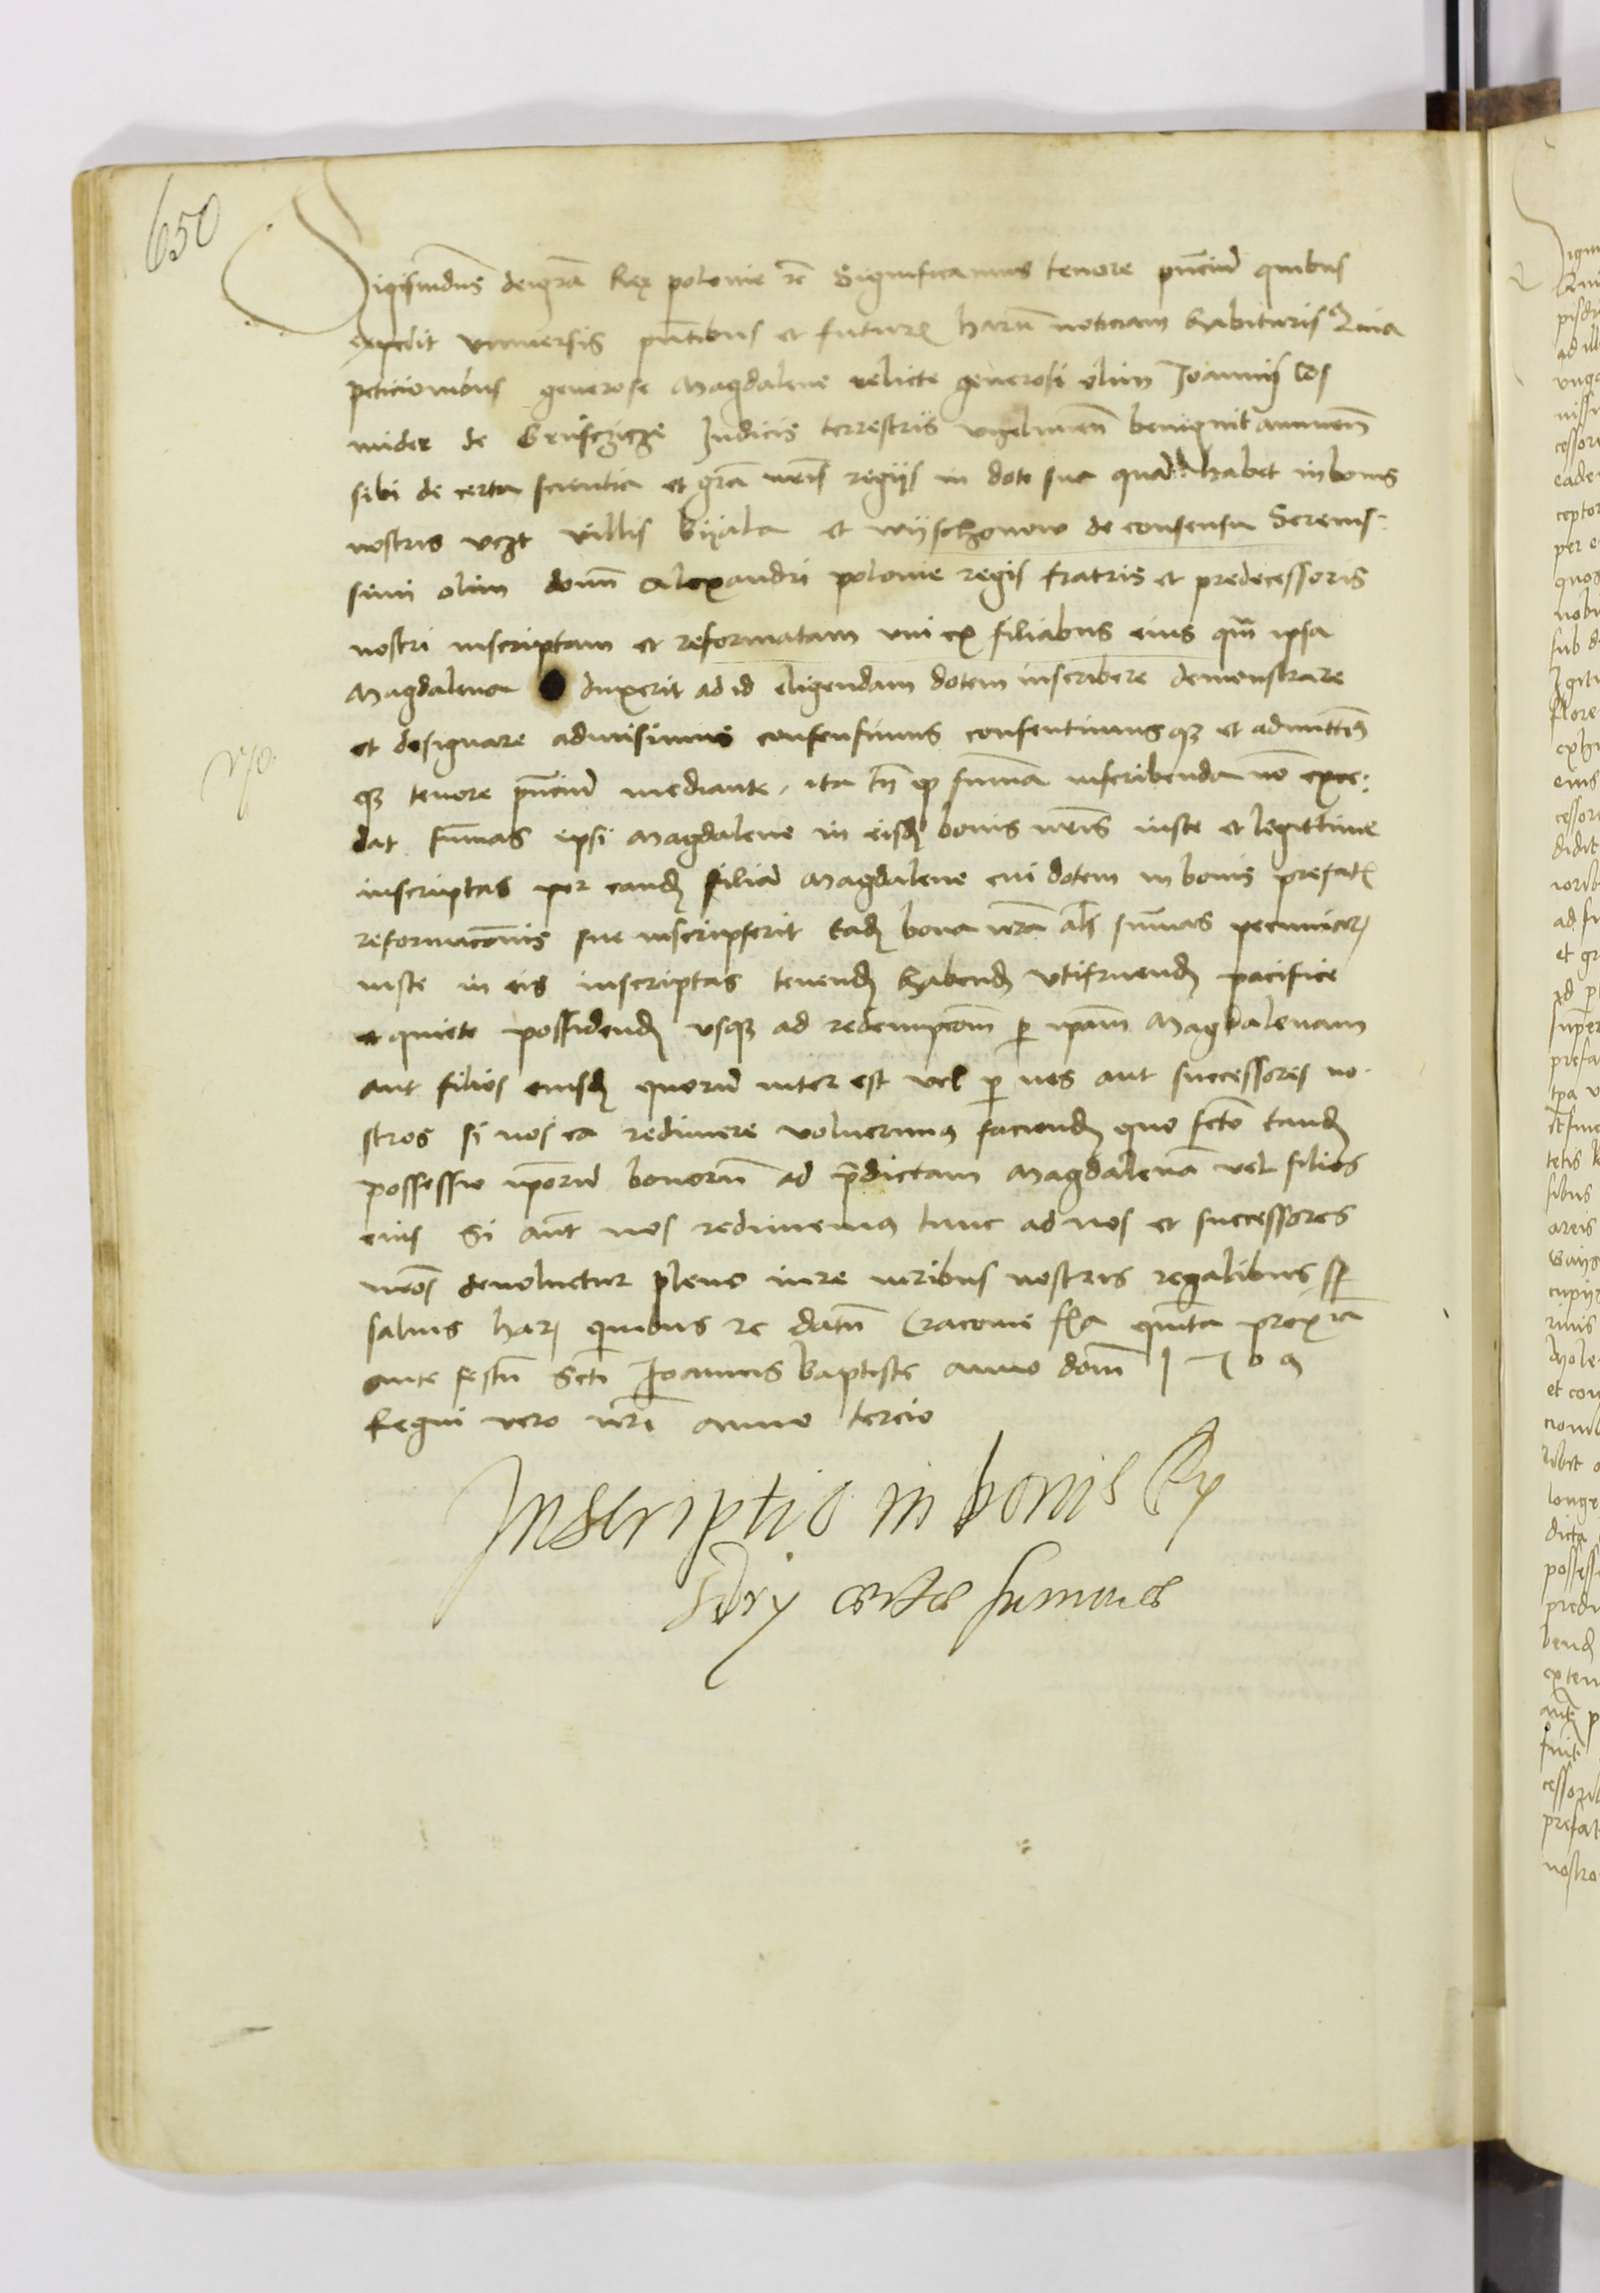 650
Sigismundus dei gra Rex polonie rc Significamus tenore pntium quibus
expedit vniuersis pntibus et futuris harum noticiam habituris Quia
peticionibus generose Magdalene relicte generosi olim Joannis Cos
mider de Gruschczicze Judicis terrestris vyelunen benignit annuen
sibi de certa scientia et gra nris regijs in dote sua quam habet in bonis
nostris vczt villis Byala et wyschonow de consensu Serenis-
simi olim domi Alexandri polonie regis fratris et predecessoris
nostri inscriptam et reformatam vni ex filiabus eius qm ipsa
Magdalena duxerit ad id eligendam dotem inscribere demonstrare
et designare admisimus consensimus consentimusq et admittims
q tenore pntium mediante, ita tn q summa inscribenda no exce-
dat summas ipsi Magdalene in eisd bonis nris iuste et legittime
inscriptas per eand filiam Magdalene cui dotem in bonis prefatis
reformaconis sue inscripserit Ead bona nra als summas pecuniar
iuste in eis inscriptas tenend habend vtifruend pacifice
et quiete possidend vsq ad redempcom p ipam Magdalenam
aut filios eiusd quorum inter est vel p nos aut successores no-
stros si nos ea redimere voluerimus faciend quo fcto eand
possessio iporum bonorum ad predictam Magdalenam vel filios
eius Si aut nos redimemus tunc ad nos et successores
nros deuoluetur pleno iure iuribus nostris regalibus sp
saluis har quibus rc datum Cracouie fla quinta proxia
ante festum Scti Joannis baptiste anno domi 1509
Regni vero nri anno tercio
Inscriptio in bonis Re
giis certe summe